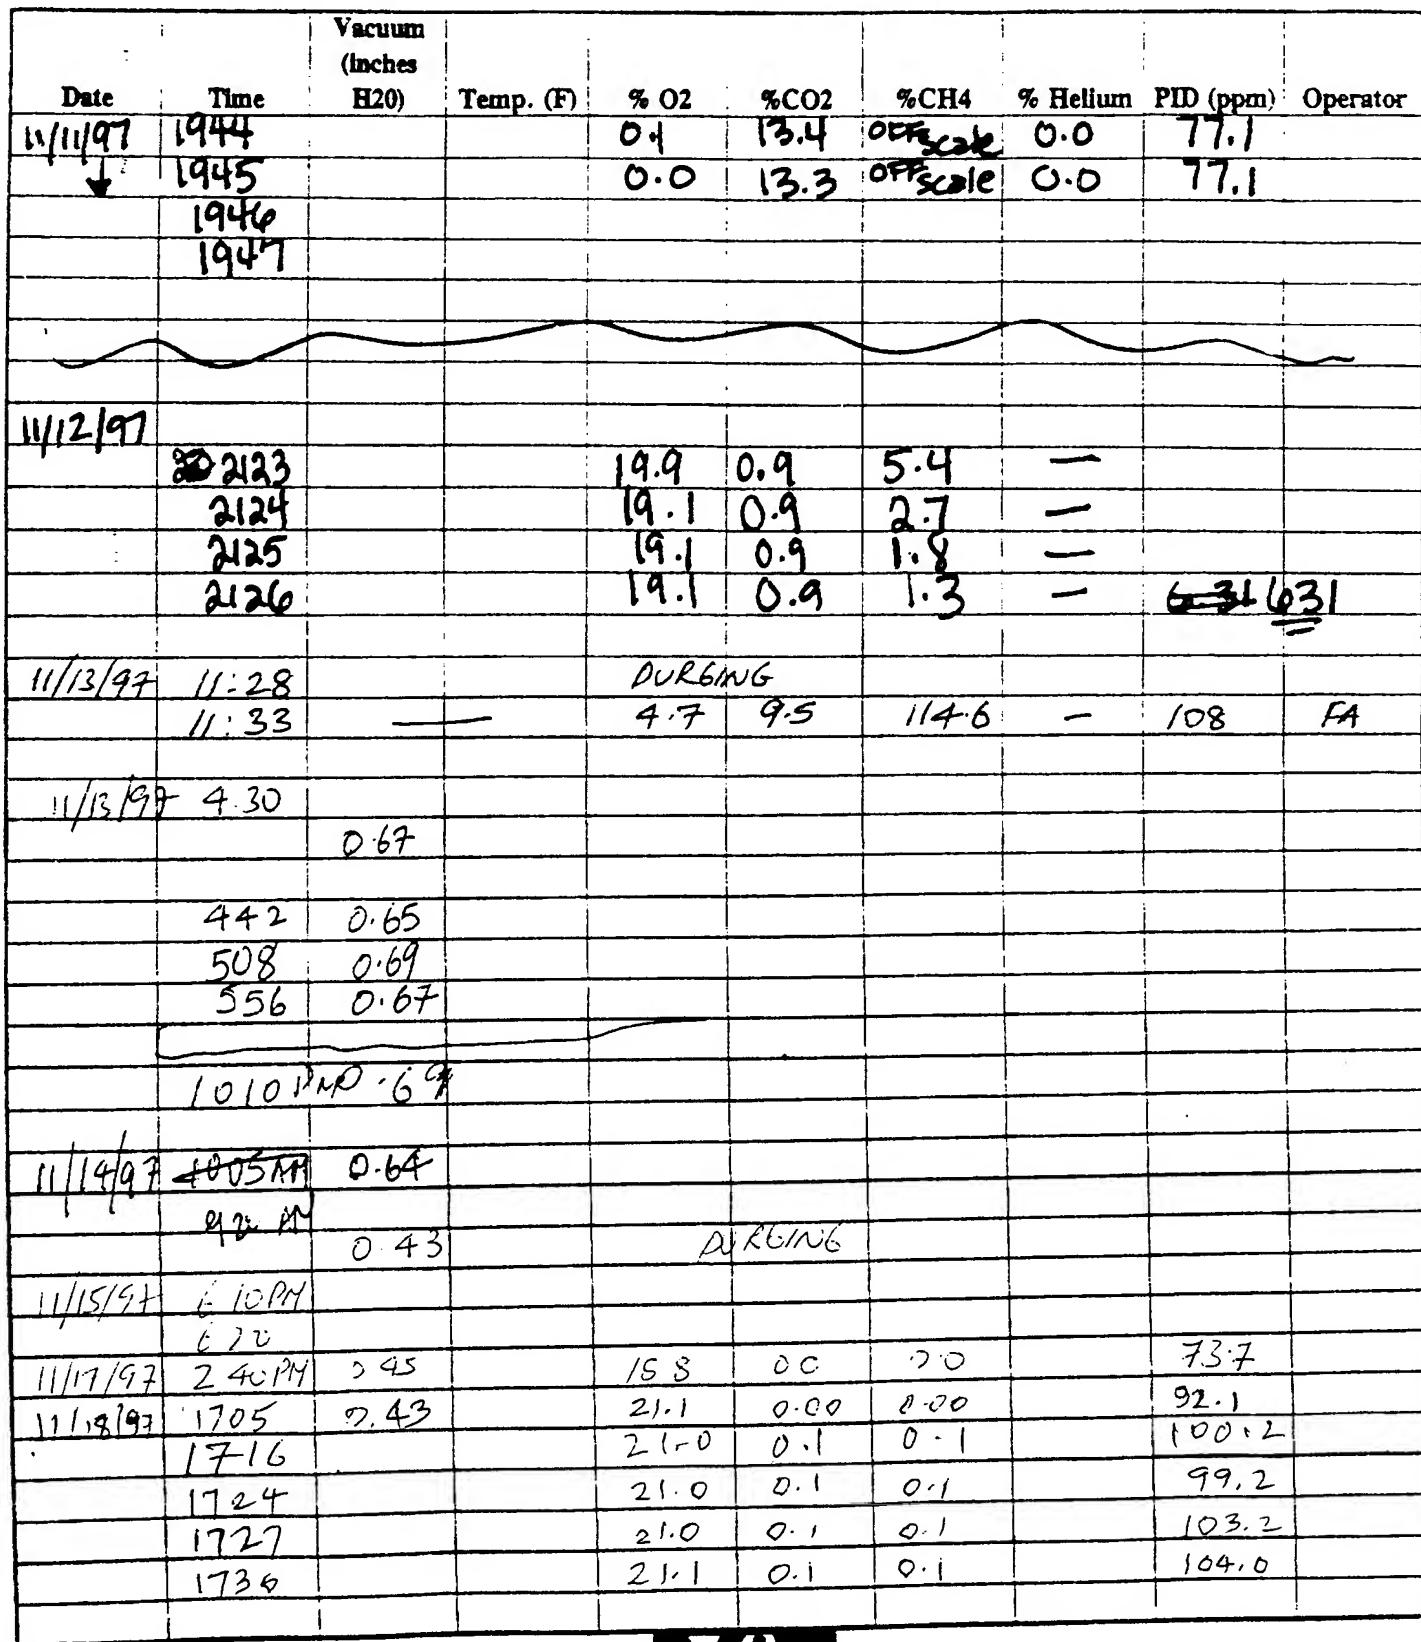 Vacuum
(inches
Date Time H20) Temp. (F) % O2 %CO2 %CH4 % Helium PID (ppm) Operator
11/11/97 1944 0.1 13.4 OFF scale 0.0 77.1
1945 0.0 13.3 OFF scale 0.0 77.1
1946
1947
11/12/97
2123 19.9 0.9 5.4 —
2124 19.1 0.9 2.7 —
2125 19.1 0.9 1.8 —
2126 19.1 0.9 1.3 — 6.31 631
11/13/97 11:28 PURGING
11:33 — 4.7 9.5 114.6 — 108 FA
11/13/97 4.30
0.67
442 0.65
508 0.69
556 0.67
1010
11/14/97 1005 AM 0.64
0.43 PURGING
11/15/97 6 10PM
11/17/97 2 40PM 0.0 73.7
11/18/97 1705 0.43 21.1 0.00 0.00 92.1
1716 21.0 0.1 0.1 100.2
1724 21.0 0.1 0.1 99.2
1727 21.0 0.1 0.1 103.2
1736 21.1 0.1 0.1 104.0